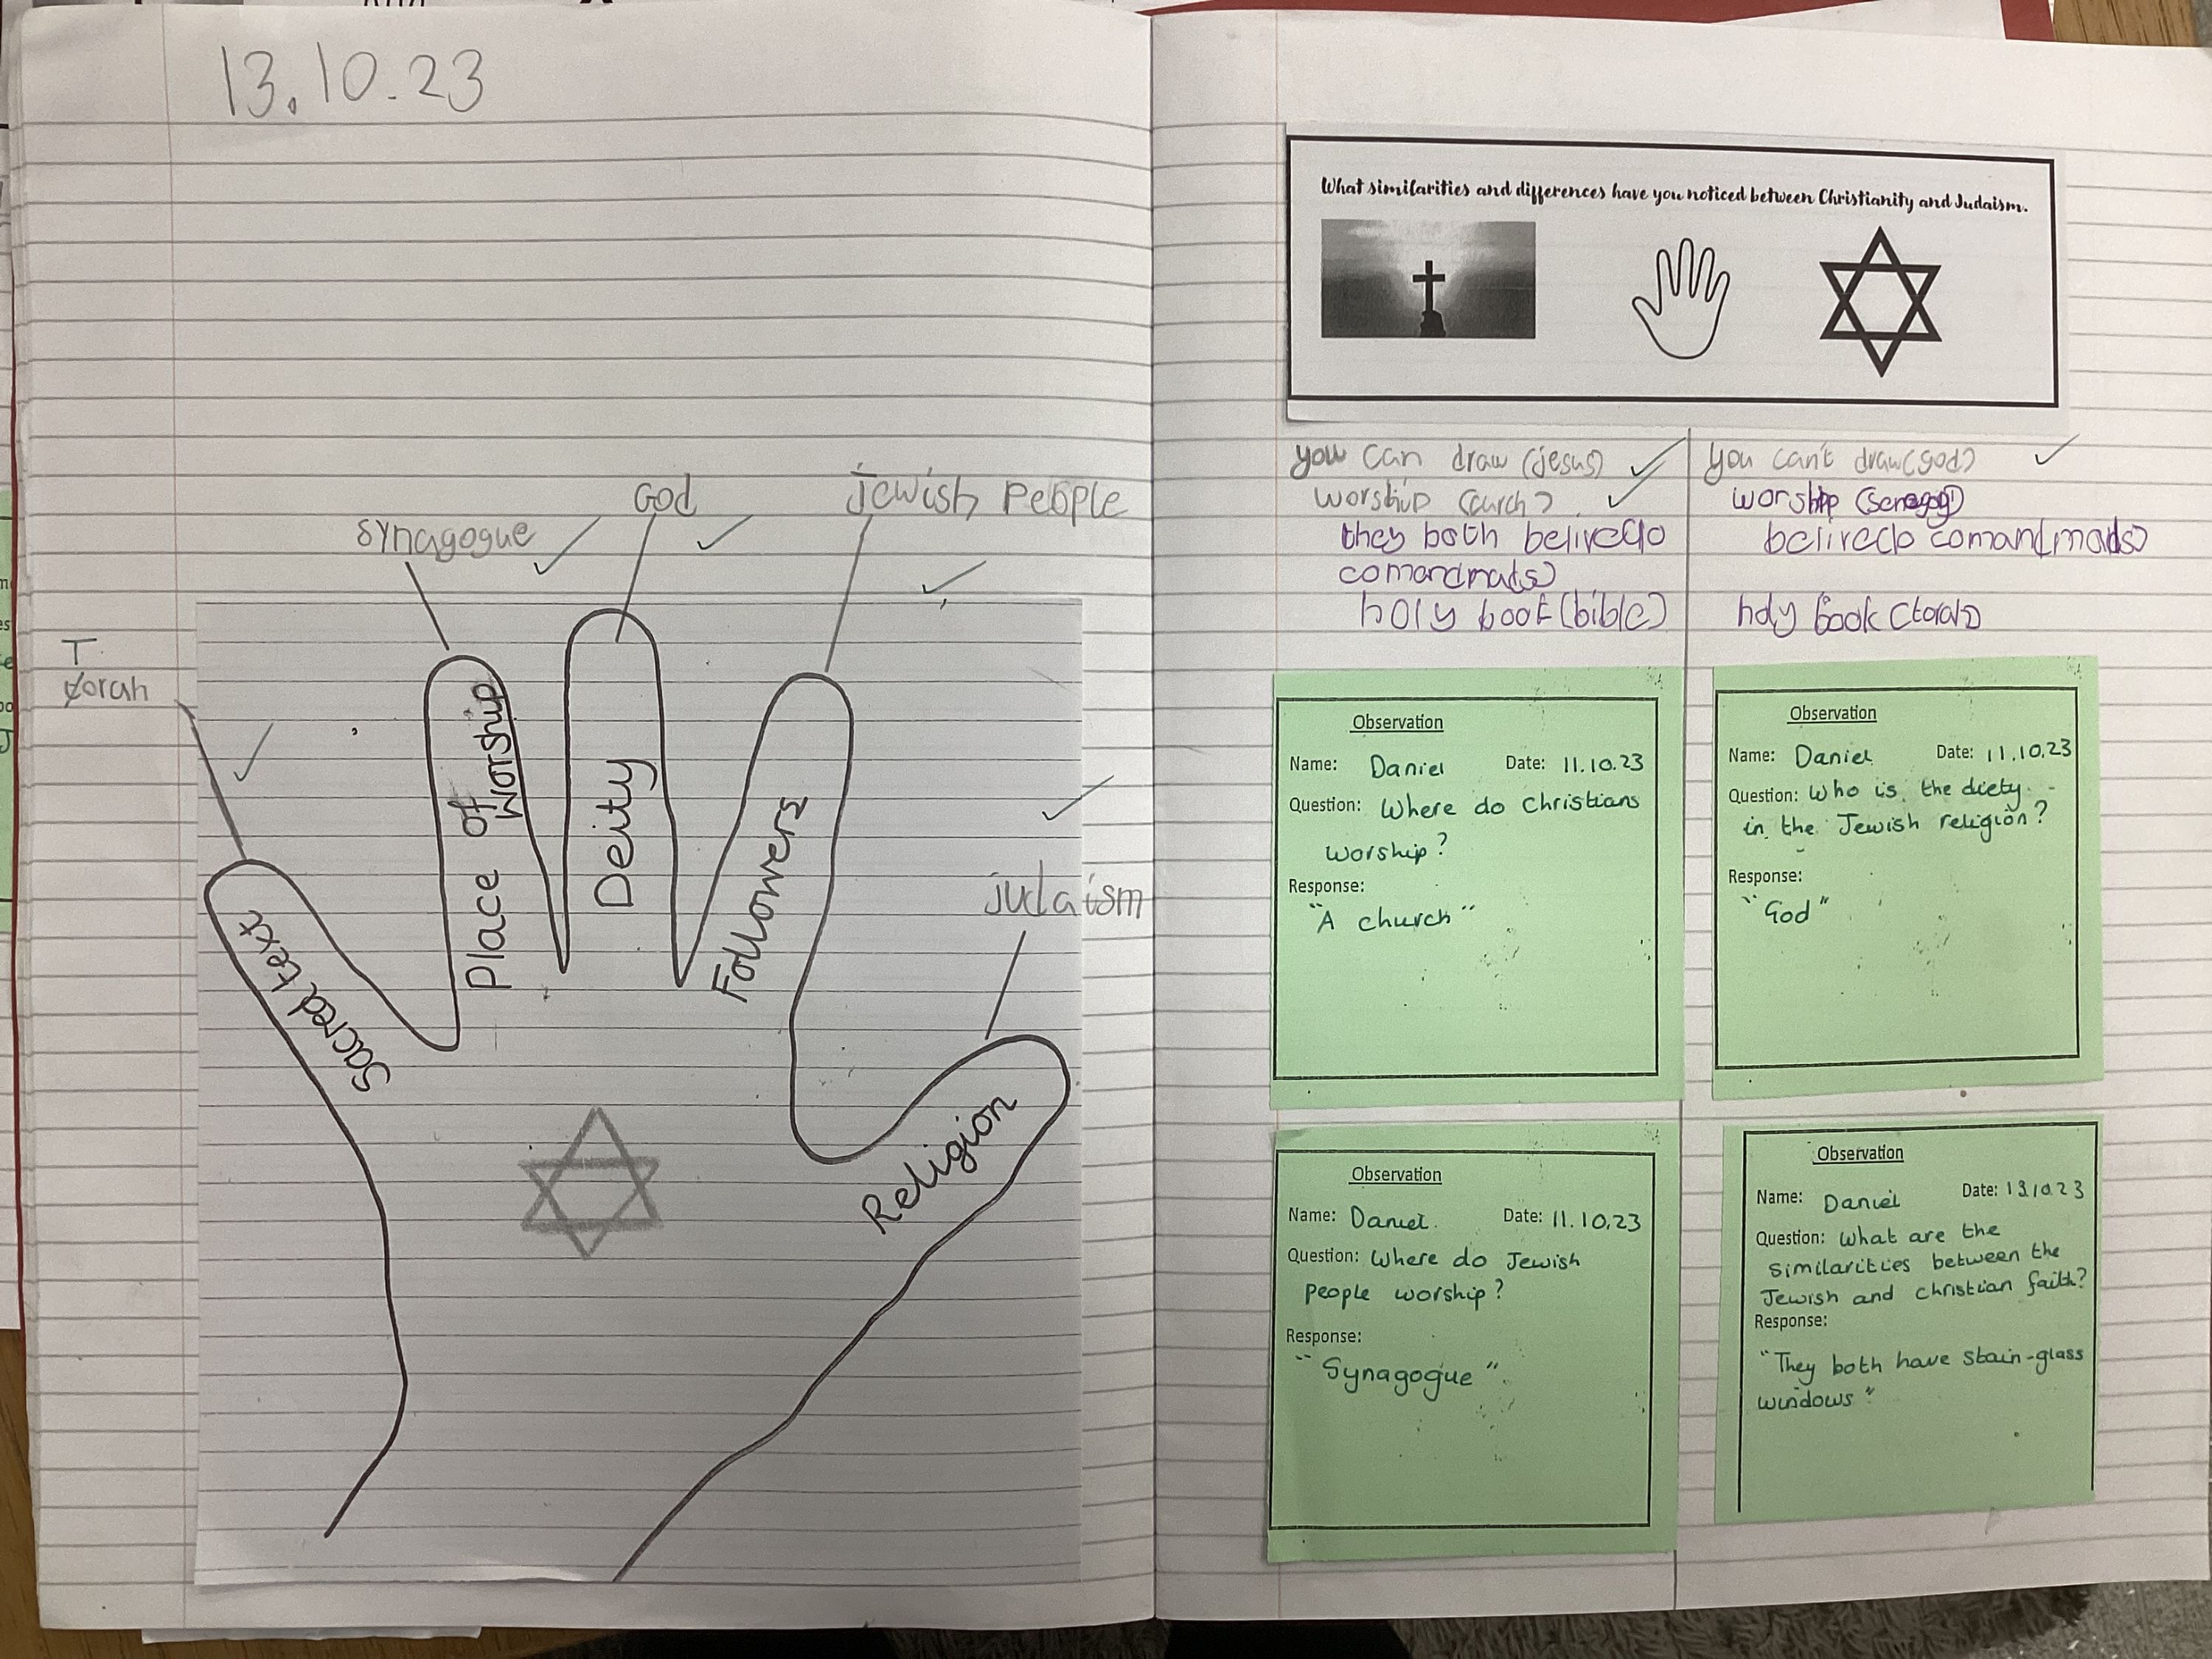 13.10.23
synagogue
God
jewish People
T
torah
judaism
Sacred text
Place of
worship
Deity
Followers
Religion
What similarities and differences have you noticed between Christianity and Judaism.
you can draw (jesus)
worship (curch)
they both belive 10
comandmats)
holy book (bible)
you can't draw (god)
worship (senegog)
belive 10 comandmads)
holy book (torah)
Observation
Name: Daniel Date: 11.10.23
Question: Where do Christians
worship?
Response:
"A church"
Observation
Name: Daniel Date: 11.10.23
Question: Who is the diety
in the Jewish religion?
Response:
"God"
Observation
Name: Daniel. Date: 11.10.23
Question: Where do Jewish
People worship?
Response:
"Synagogue".
Observation
Name: Daniel Date: 13.10.23
Question: What are the
similarities between the
Jewish and christian faith?
Response:
"They both have stain-glass
windows"